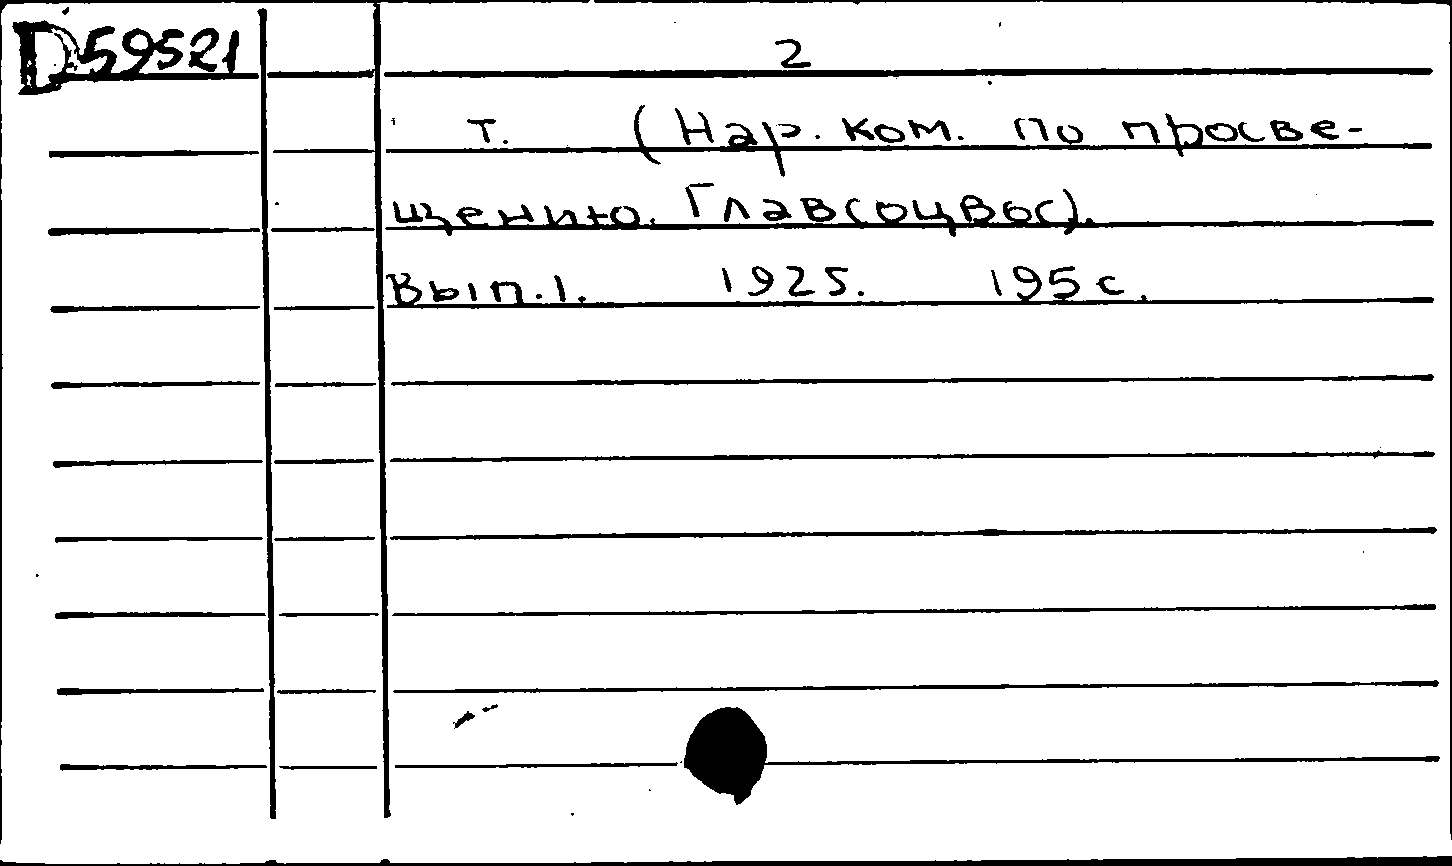 D59521 2
т. (Нар. ком. по просве-
щению. Главсоцвос).
Вып. 1. 1925. 195 с.